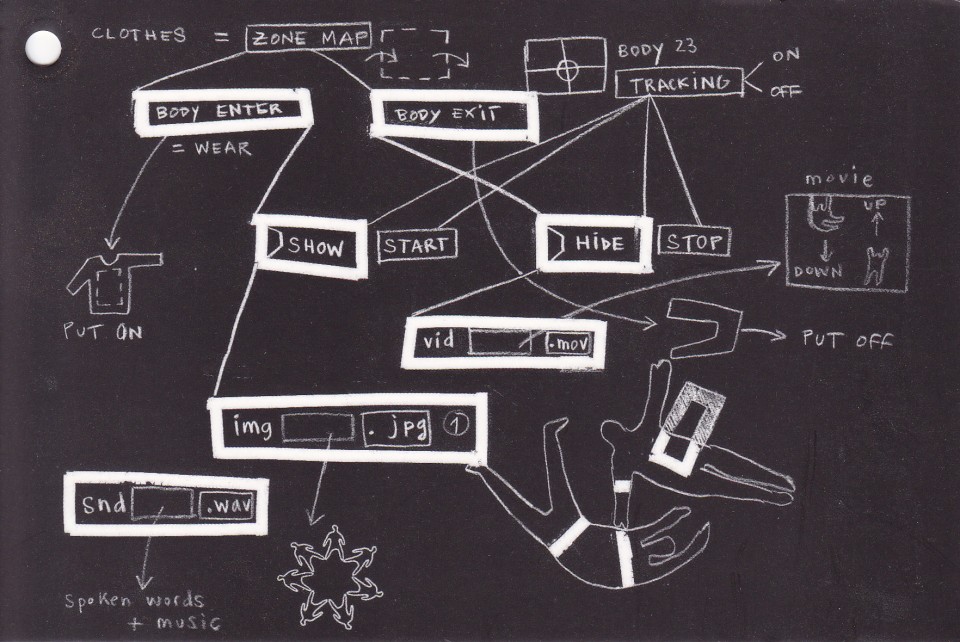 CLOTHES = ZONE MAP
BODY 23
TRACKING
ON
OFF
BODY ENTER
BODY EXIT
= WEAR
movie
UP
DOWN
SHOW
START
HIDE
STOP
PUT ON
vid .mov
PUT OFF
img .jpg 1
snd .wav
Spoken words
+ music